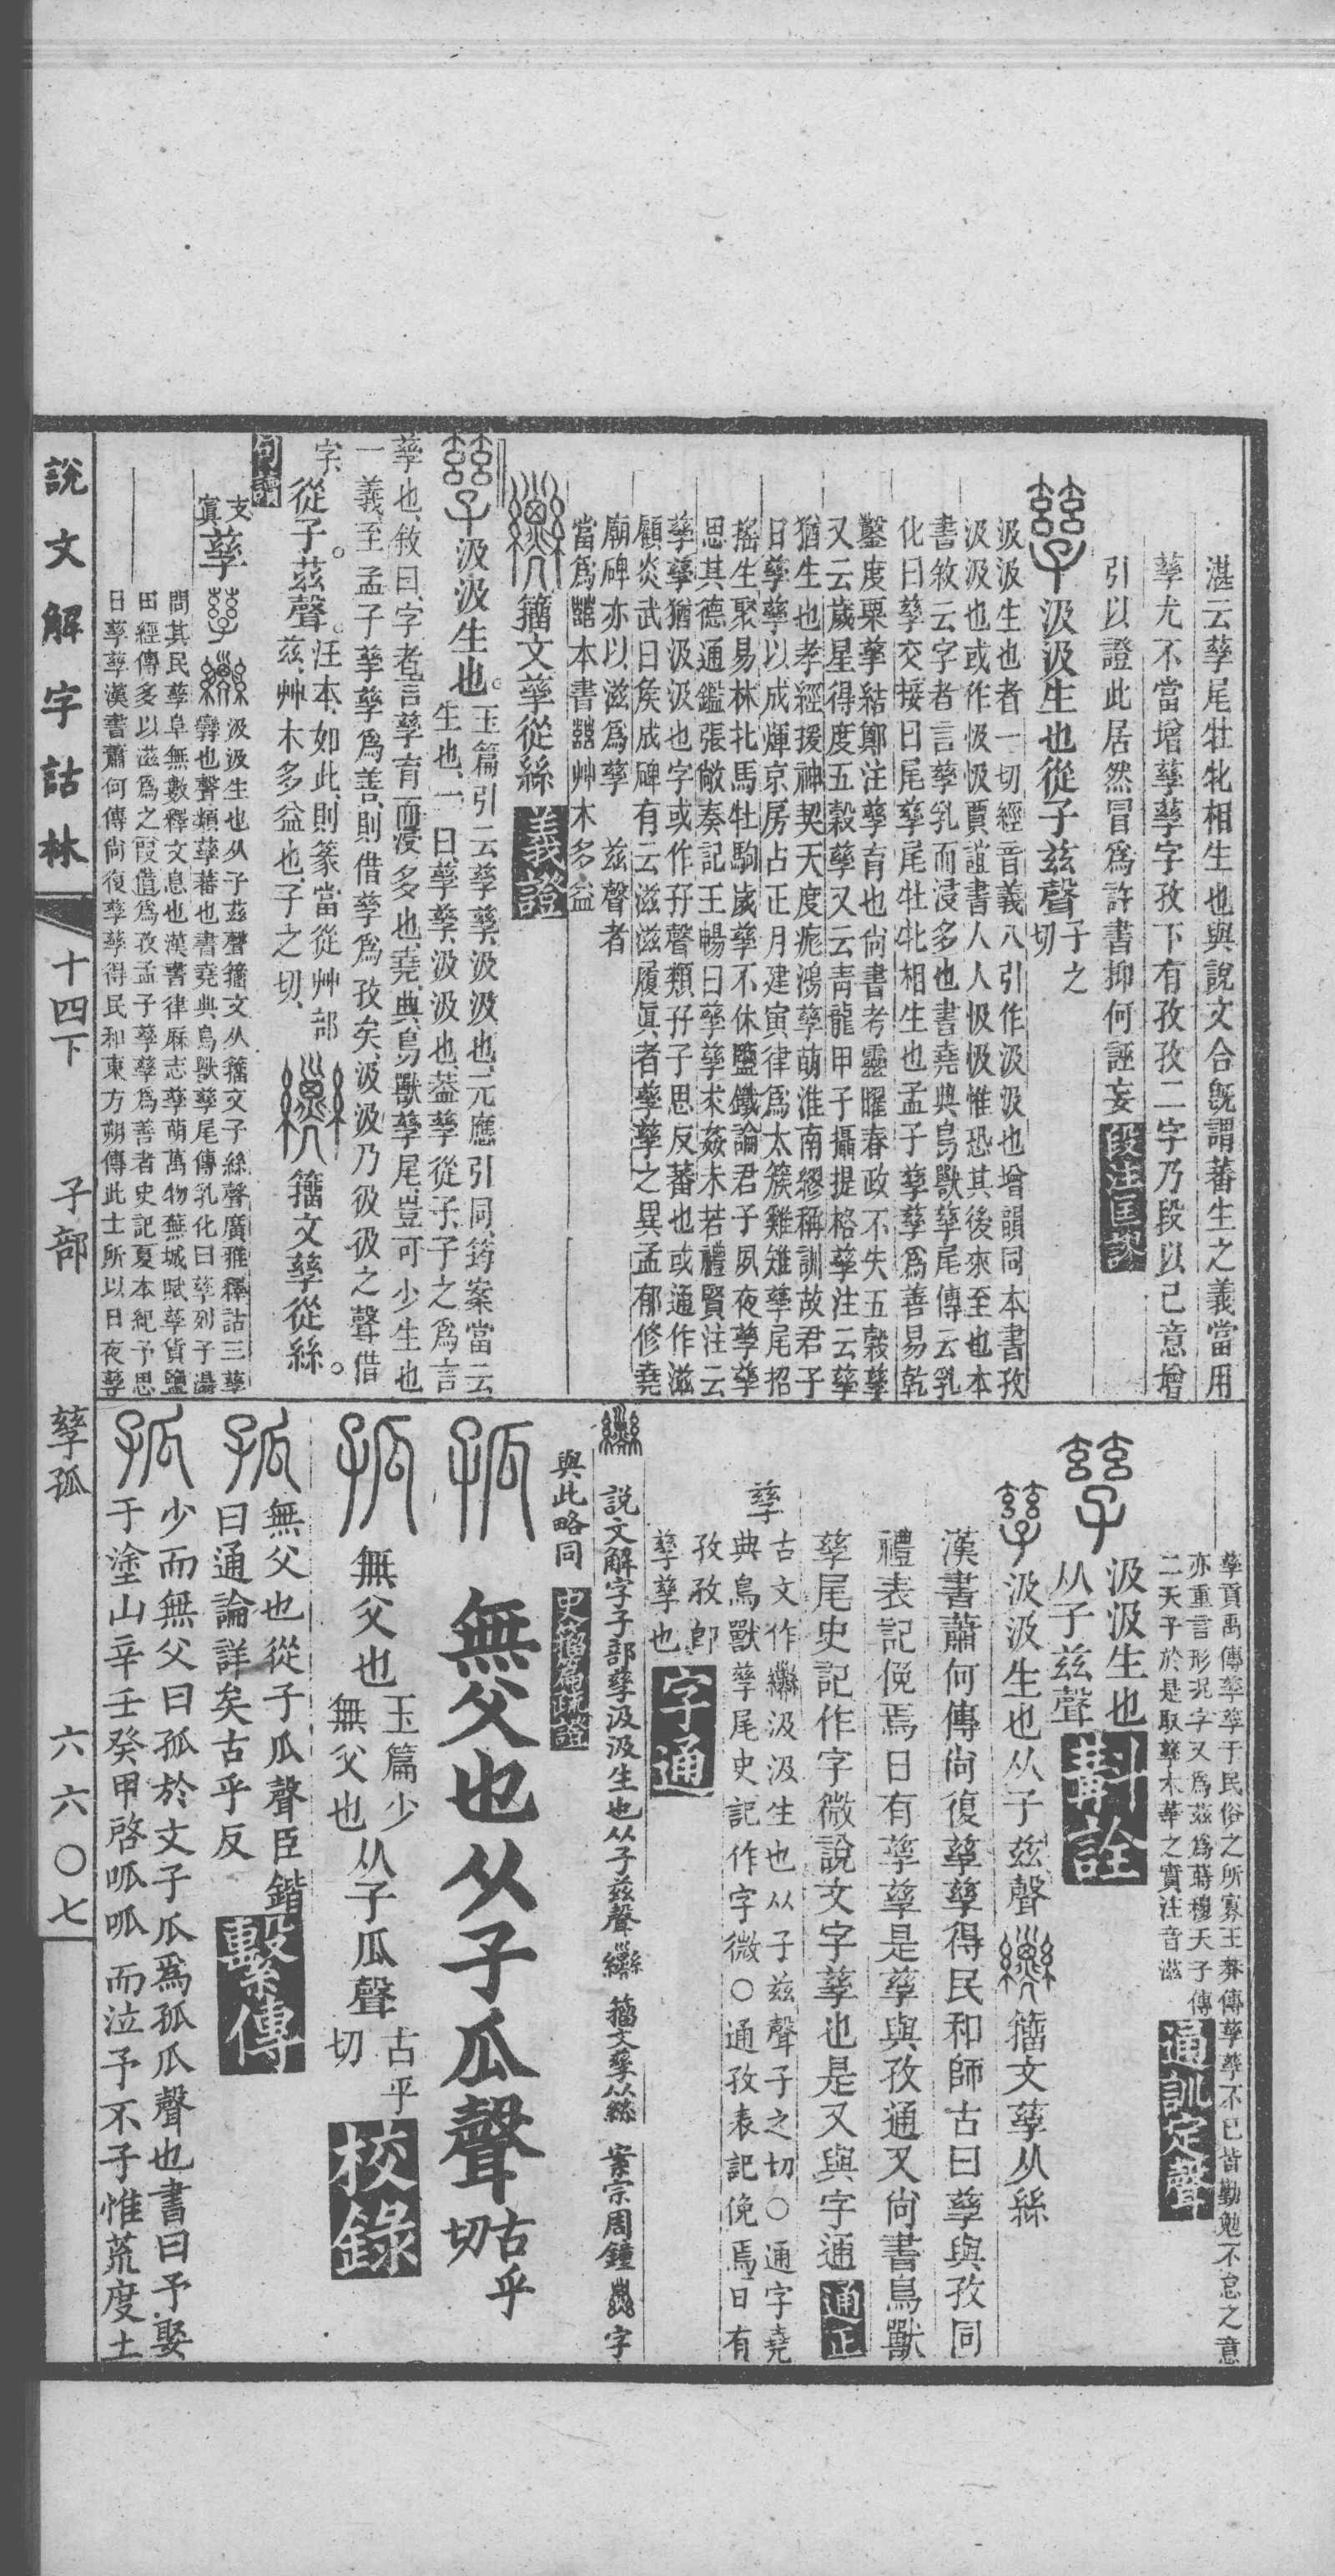 湛云孳尾牡牝相生也與說文合旣謂蕃生之義當用
孳尤不當增孳孳字孜下有孜孜二字乃段以己意增
引以證此居然冒爲許書抑何誣妄段注匡謬
汲汲生也從子茲聲子之切
汲汲生也者一切經音義八引作汲汲也增韻同本書孜
汲汲也或作伋伋賈誼書人人伋伋惟恐其後來至也本
書敘云字者言孳乳而浸多也書堯典鳥獸孳尾傳云乳
化曰孳交接曰尾孳尾牡牝相生也孟子孳孳爲善易乾
鑿度粟孳結鄭注孳育也尙書考靈曜春政不失五穀孳
又云歲星得度五穀孳又云靑龍甲子攝提格孳注云孳
猶生也孝經援神契天度㾫鴻孳萌淮南繆稱訓故君子
日孳孳以成煇京房占正月建寅律爲太簇雞雉孳尾招
搖生聚易林牝馬牡駒歲孳不休鹽鐵論君子夙夜孳孳
思其德通鑑張敞奏記王暢曰孳孳求姦未若禮賢注云
孳孳猶汲汲也字或作孖聲類孖子思反蕃也或通作滋
顧炎武曰矦成碑有云滋滋履眞者孳孳之異孟郁修堯
廟碑亦以滋爲孳　茲聲者
當爲本書艸木多益
籒文孳從絲義證
汲汲生也。玉篇引云孳孳、汲汲也、元應引同、筠案當云生也、一曰孳孳、汲汲也、葢孳從子、子之爲言
孳也、敘曰、字者、言孳育而浸多也、堯典、鳥獸孳尾、豈可少生也
一義、至孟子孳孳爲善、則借孳爲孜矣、汲汲乃彶彶之聲借
字、從子。茲聲。汪本如此、則篆當從艸部茲、艸木多益也、子之切、籒文孳從絲。
句讀
孳汲汲生也从子茲聲籒文从籒文子絲聲廣雅釋詁三孳
孿也聲類孳蕃也書堯典鳥獸孳尾傳乳化曰孳列子湯
問其民孳阜無數釋文息也漢書律厤志孳萌萬物蕪城賦孳貨鹽
田經傳多以滋爲之叚借爲孜孟子孳孳爲善者史記夏本紀予思
日孳孳漢書蕭何傳尙復孳孳得民和東方朔傳此士所以日夜孳
孳貢禹傳孳孳于民俗之所寡王莽傳孳孳不已皆勤勉不怠之意
亦重言形況字又爲茲爲蒔穆天子傳
二天子於是取孳木華之實注音滋通訓定聲
汲汲生也
从子茲聲斠詮
汲汲生也从子茲聲籒文孳从絲
漢書蕭何傳尙復孳孳得民和師古曰孳與孜同
禮表記俛焉日有孳孳是孳與孜通又尙書鳥獸
孳尾史記作字微說文字孳也是又與字通通正
孳
古文作汲汲生也从子茲聲子之切〇通字堯
典鳥獸孳尾史記作字微〇通孜表記俛焉日有
孜孜卽
孳孳也字通
說文解字子部孳汲汲生也从子茲聲籒文孳从絲案宗周鐘字
與此略同史籒篇疏證
無父也从子瓜聲古乎切
無父也玉篇少無父也从子瓜聲古乎切校錄
無父也從子瓜聲臣鍇
曰通論詳矣古乎反繫傳
少而無父曰孤於文子瓜爲孤瓜聲也書曰予娶
于塗山辛壬癸甲啓呱呱而泣予不子惟荒度土
說文解字詁林　十四下　子部　孳孤　六六〇七